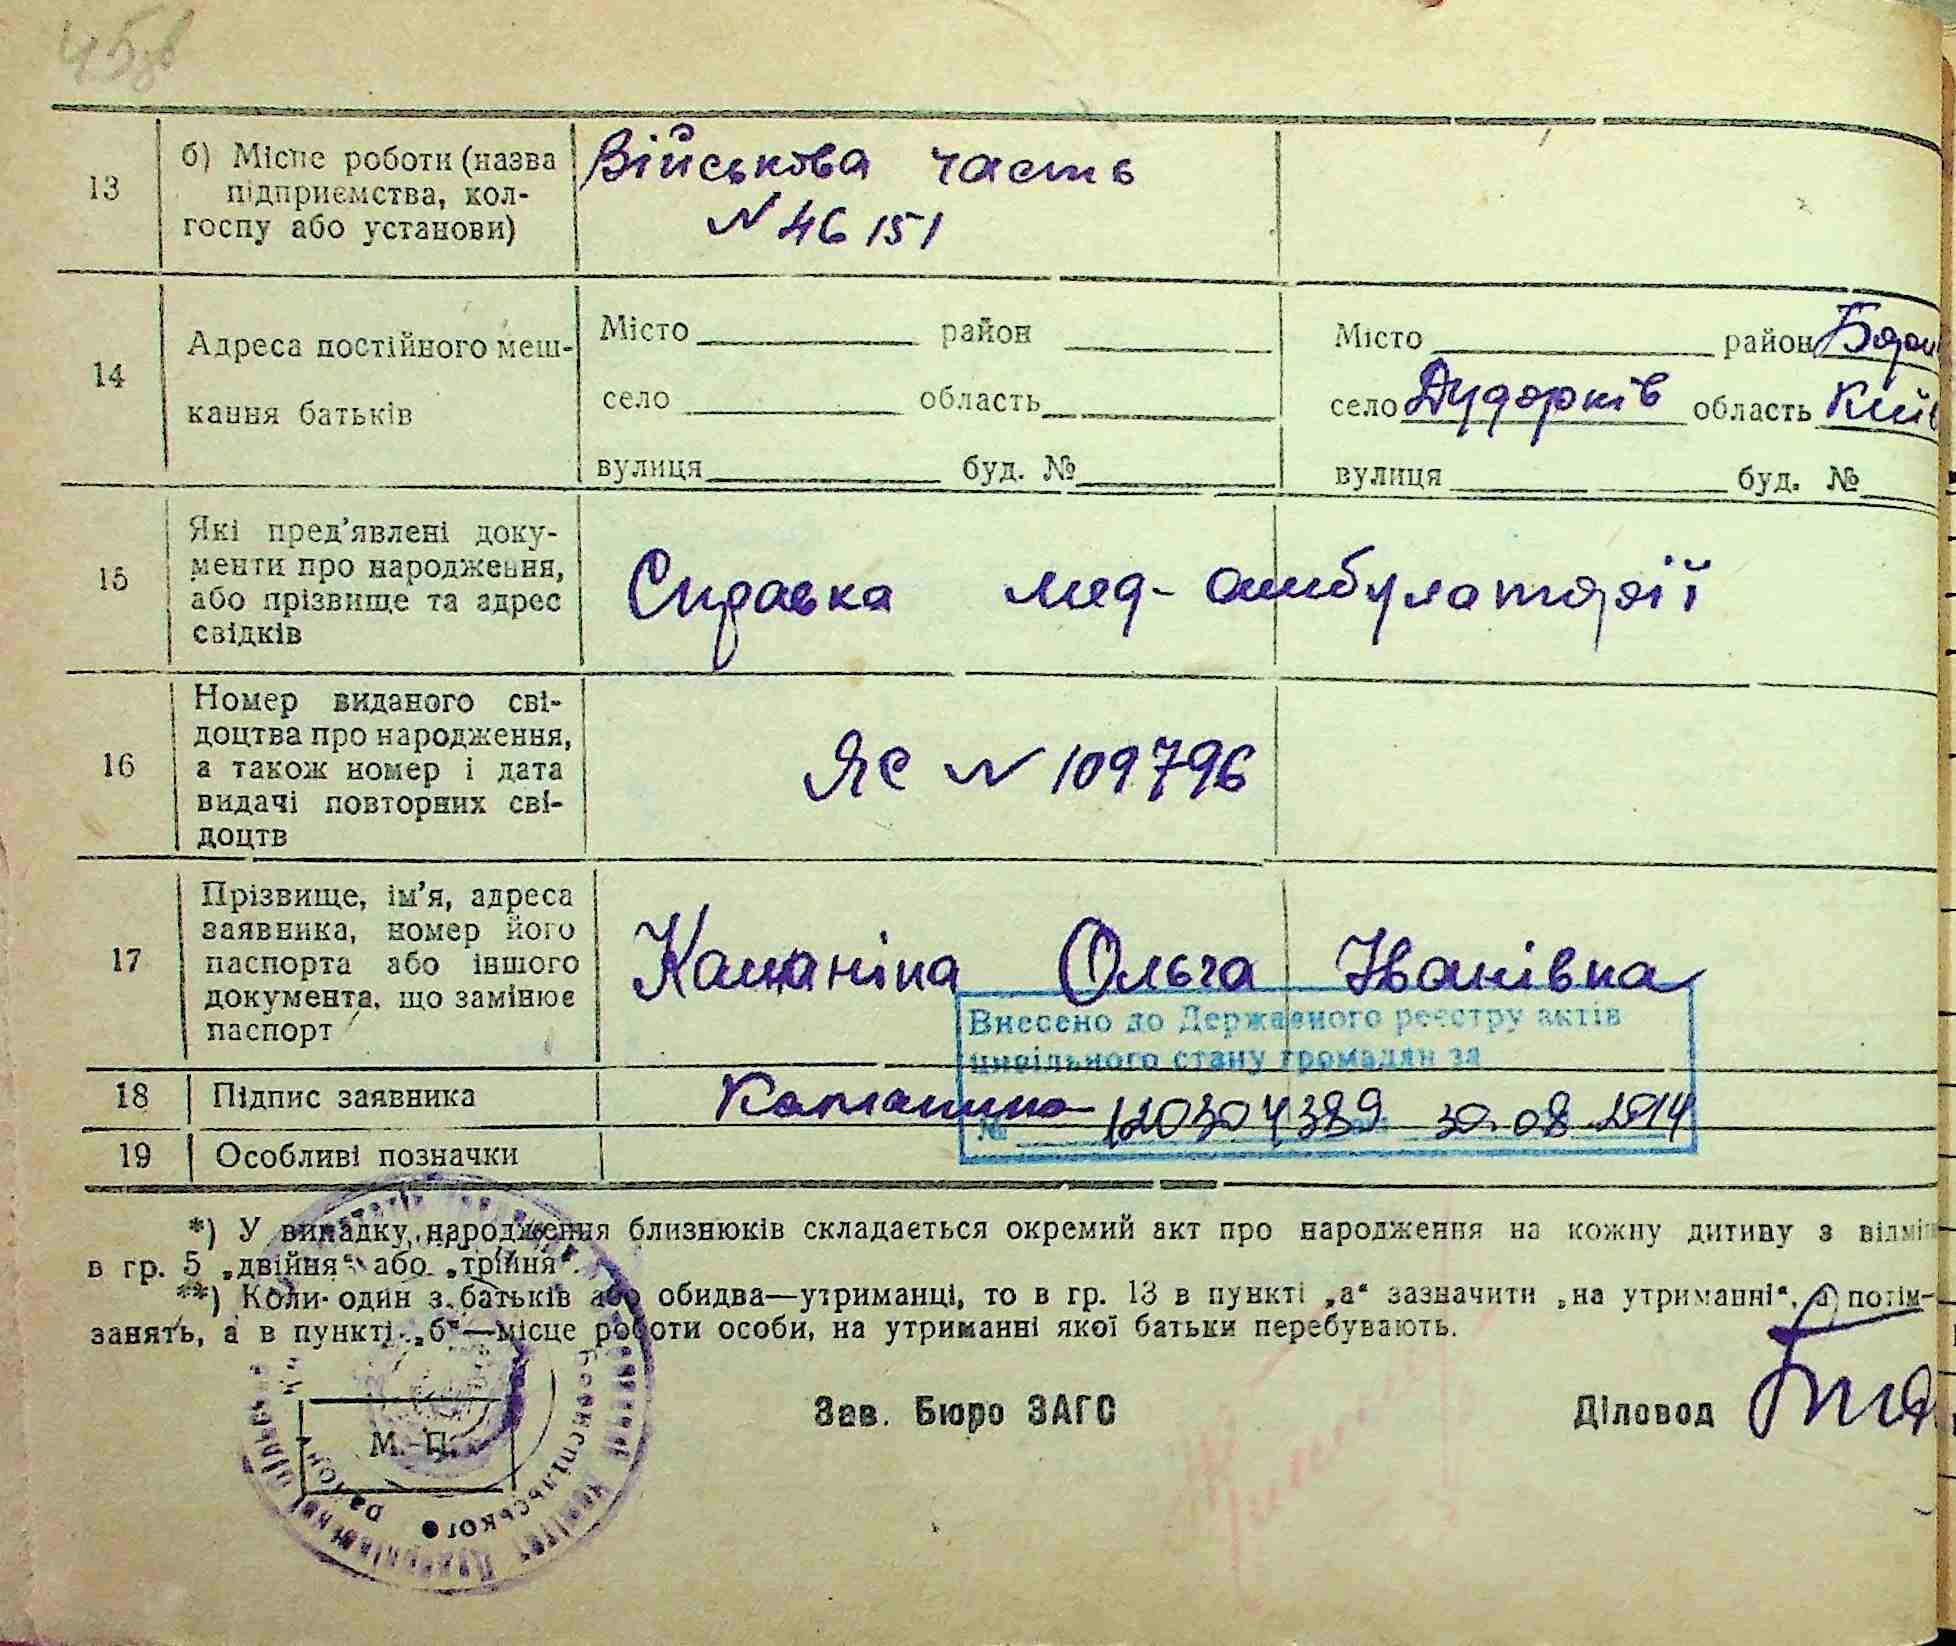 45зв
13
б) Місце роботи (назва
підприємства, кол-
госпу або установи)
Військова часть
N 46151
14
Адреса постійного меш-
кання батьків
Місто район
село область
вулиця буд. №
Місто район Бори
село Дударків область Київ
вулиця буд. №
15
Які пред'явлені доку-
менти про народження,
або прізвище та адрес
свідків
Справка мед-амбулаторії
16
Номер виданого сві-
доцтва про народження,
а також номер і дата
видачі повторних сві-
доцтв
ЯС N 109796
17
Прізвище, ім'я, адреса
заявника, номер його
паспорта або іншого
документа, що замінює
паспорт
Каманіна Ольга Іванівна
Внесено до Державного реєстру актів
цивільного стану громадян за
18
Підпис заявника
Каманина
№ 120304389 30.08.2014
19
Особливі позначки
*) У випадку народження близнюків складається окремий акт про народження на кожну дитину з відмі
в гр. 5 „двійня“ або „трійня“.
**) Коли один з батьків або обидва—утриманці, то в гр. 13 в пункті „а“ зазначити „на утриманні“, а потім—
занять, а в пункті „б“—місце роботи особи, на утриманні якої батьки перебувають.
Зав. Бюро ЗАГС
Діловод
М. П.
Бориспільського району